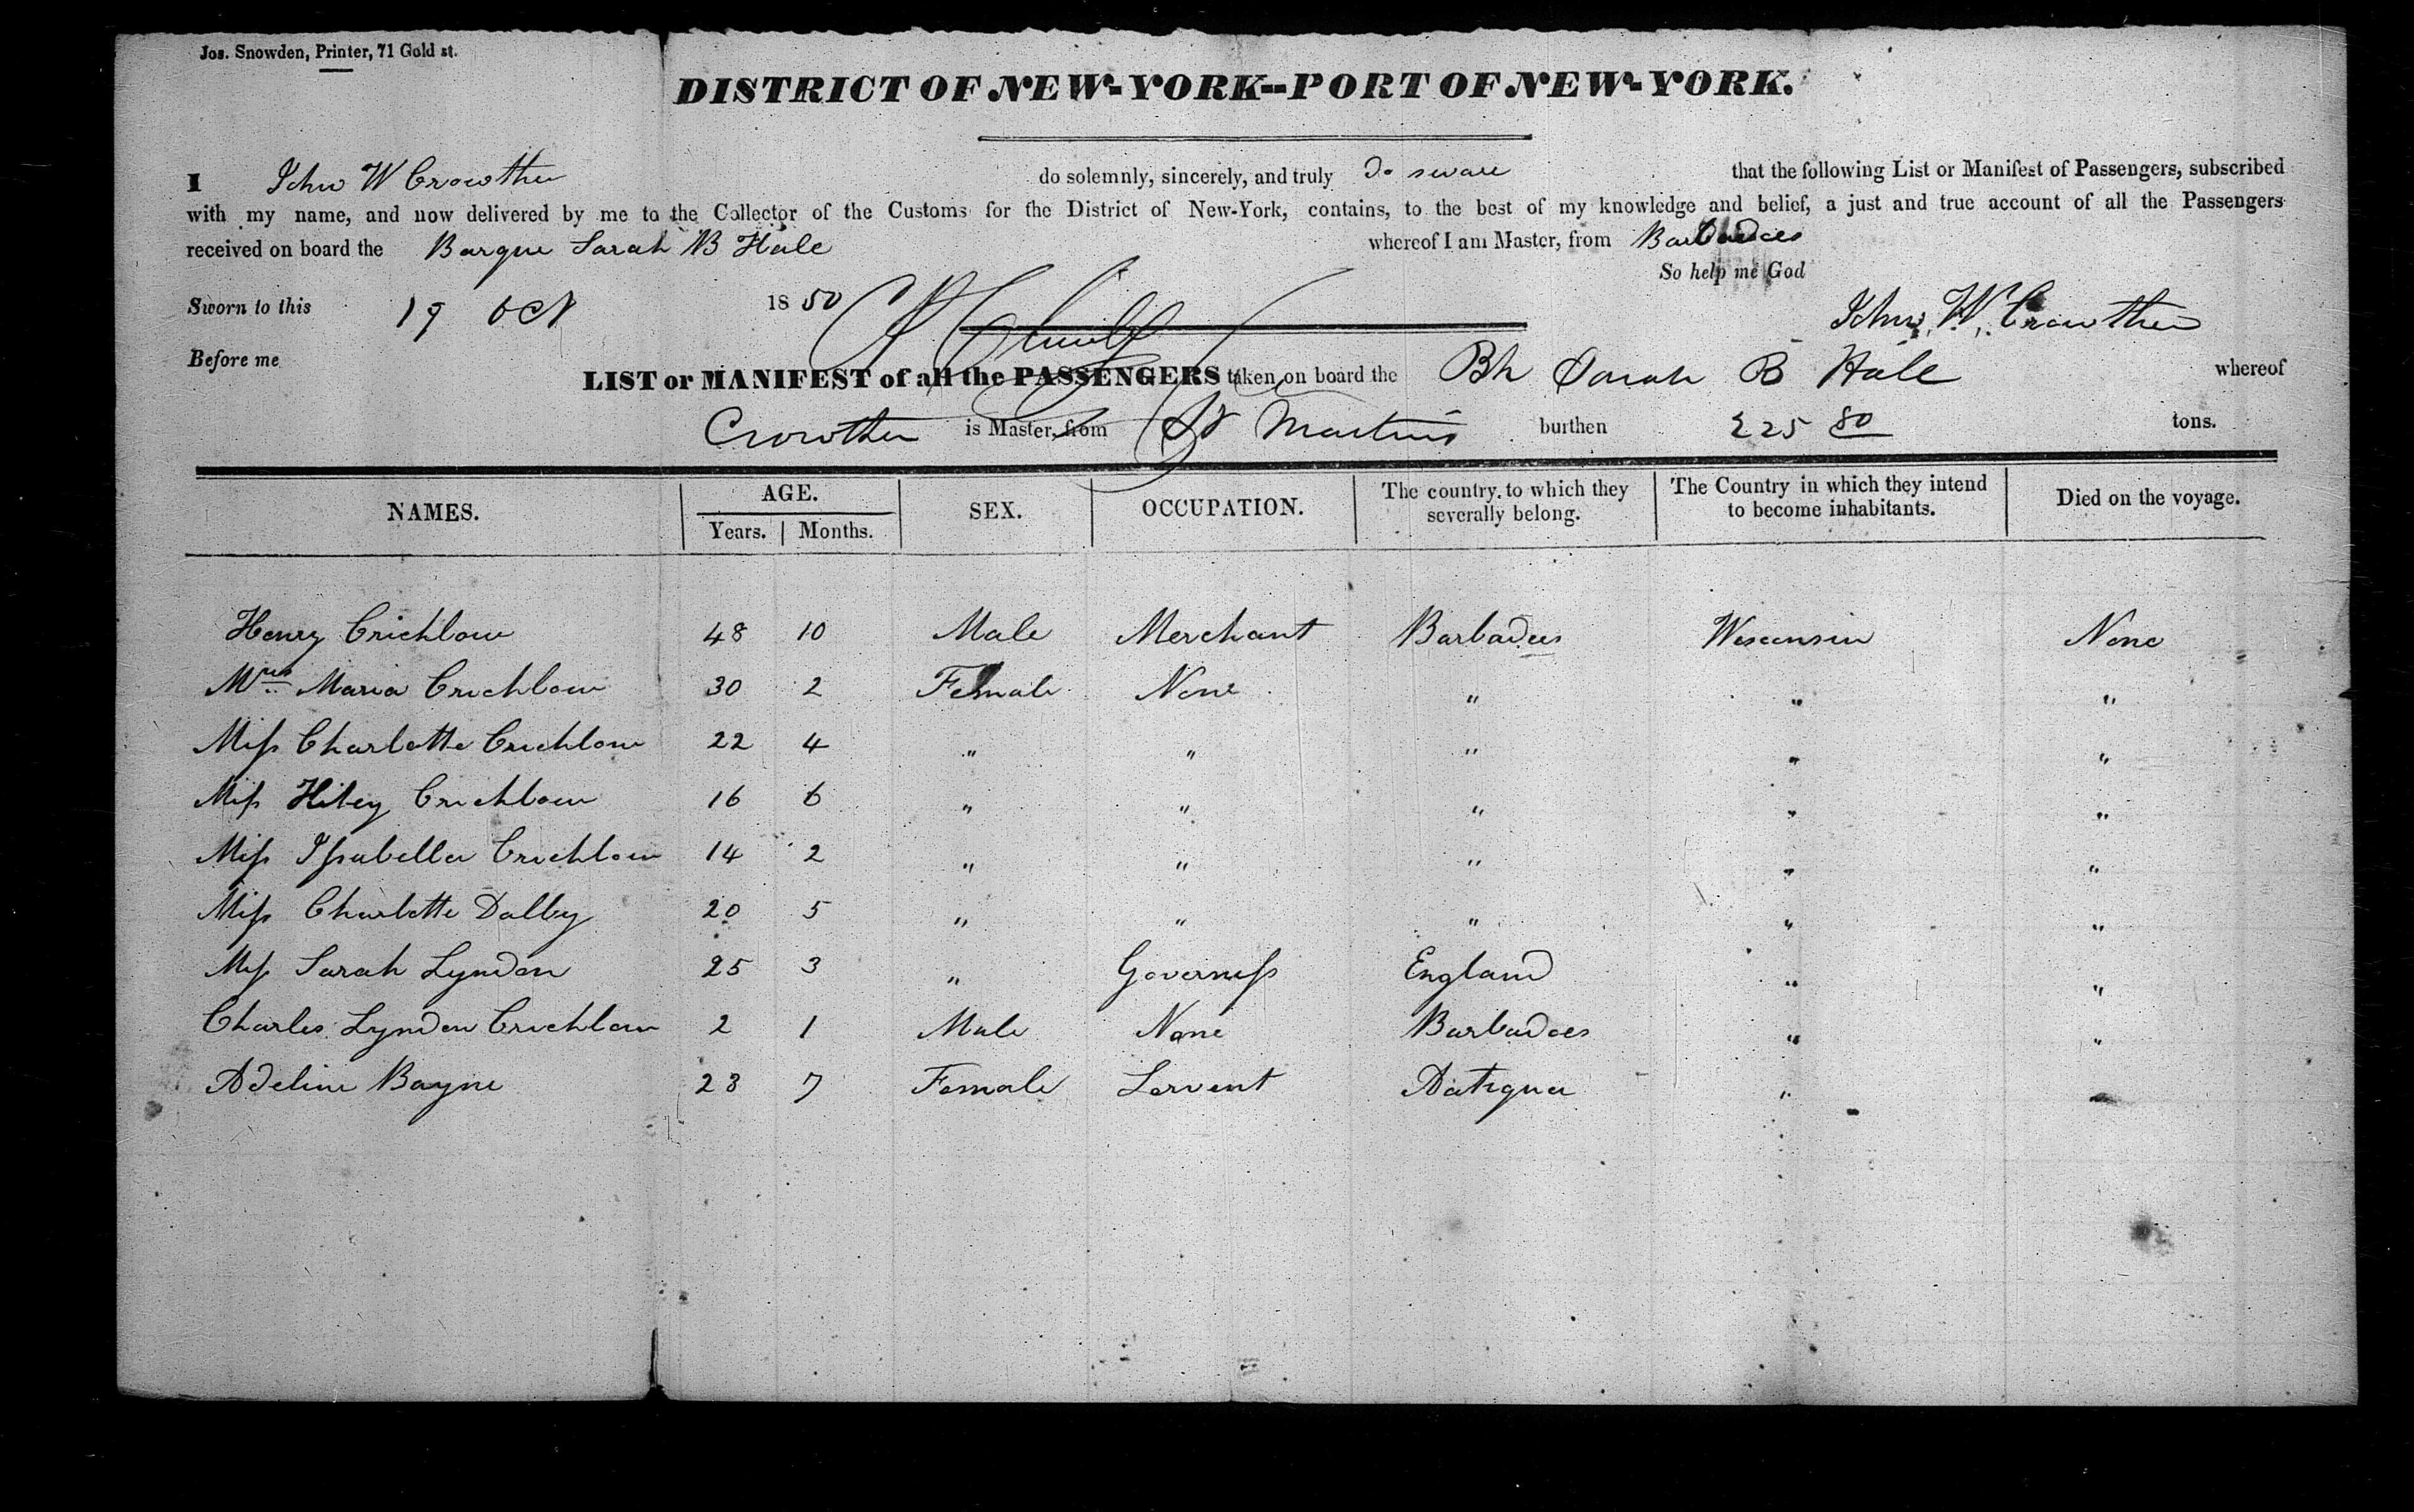 Jos. Snowden, Printer, 71 Gold st.
DISTRICT OF NEW-YORK--PORT OF NEW-YORK.
I John W Crowther do solemnly, sincerely, and truly Do sware that the following List or Manifest of Passengers, subscribed
with my name, and now delivered by me to the Collector of the Customs for the District of New-York, contains, to the best of my knowledge and belief, a just and true account of all the Passengers
received on board the Barque Sarah B Hale whereof I am Master, from Barbadoes
So help me God
Sworn to this 19 Oct 1850
John W. Crowther
Before me
LIST or MANIFEST of all the PASSENGERS taken on board the Bk Sarah B Hale whereof
Crowther is Master, from St Martins burthen 225 80 tons.
NAMES. AGE. Years. Months. SEX. OCCUPATION. The country to which they severally belong. The Country in which they intend to become inhabitants. Died on the voyage.
Henry Crichlow 48 10 Male Merchant Barbadoes Wisconsin None
Mrs Maria Crichlow 30 2 Female None " " "
Miss Charlotte Crichlow 22 4 " " " " "
Miss Crichlow 16 6 " " " " "
Miss Issabella Crichlow 14 2 " " " " "
Miss Charlotte Dalby 20 5 " " " " "
Miss Sarah Lyndon 25 3 " Governess England " "
Charles Lynden Crichlow 2 1 Male None Barbadoes " "
Adeline Bayne 23 7 Female Servent Antigua " "